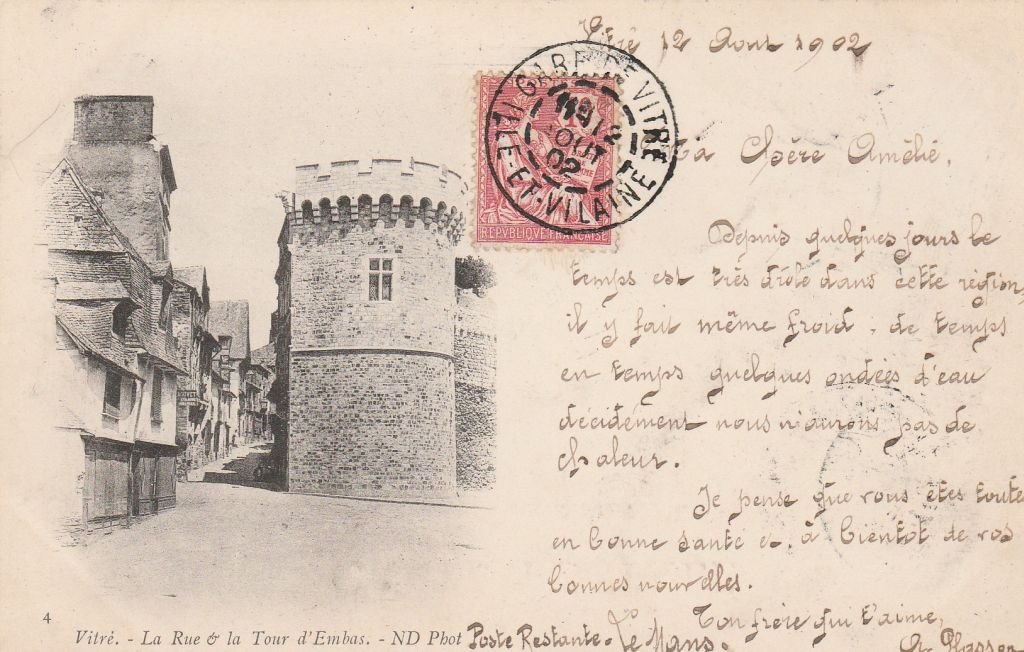 Vitré 12 Aout 1902
GARE DE VITRÉ
12
AOUT
02
ILLE-ET-VILAINE
REPUBLIQUE FRANÇAISE
Ma Chère Amélie,
Depuis quelques jours le
temps est très drôle dans cette région,
il y fait même froid, de temps
en temps quelques ondées d'eau
décidément nous n'aurons pas de
chaleur.
Je pense que vous êtes toutes
en bonne santé et à bientôt de vos
bonnes nouvelles.
Ton frère qui t'aime,
Poste Restante. Le Mans.
4
Vitré. - La Rue & la Tour d'Embas. - ND Phot